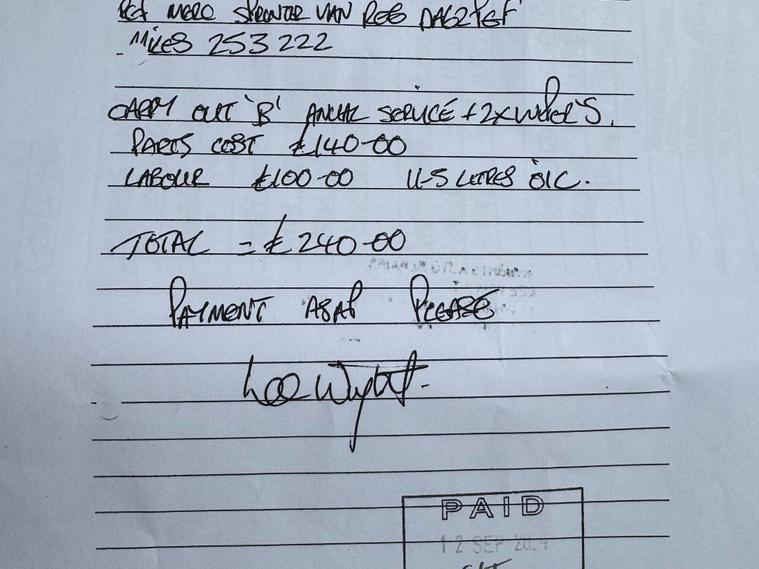 REF MERC SPRINTER VAN REG
MILES 253 222
CARRY OUT 'B' ANUAL SERVICE + 2X
PARTS COST £140-00
LABOUR £100-00 11-5 LITRES OIL.
TOTAL = £240-00
PAYMENT ASAP PLEASE
Lee
PAID
12 SEP